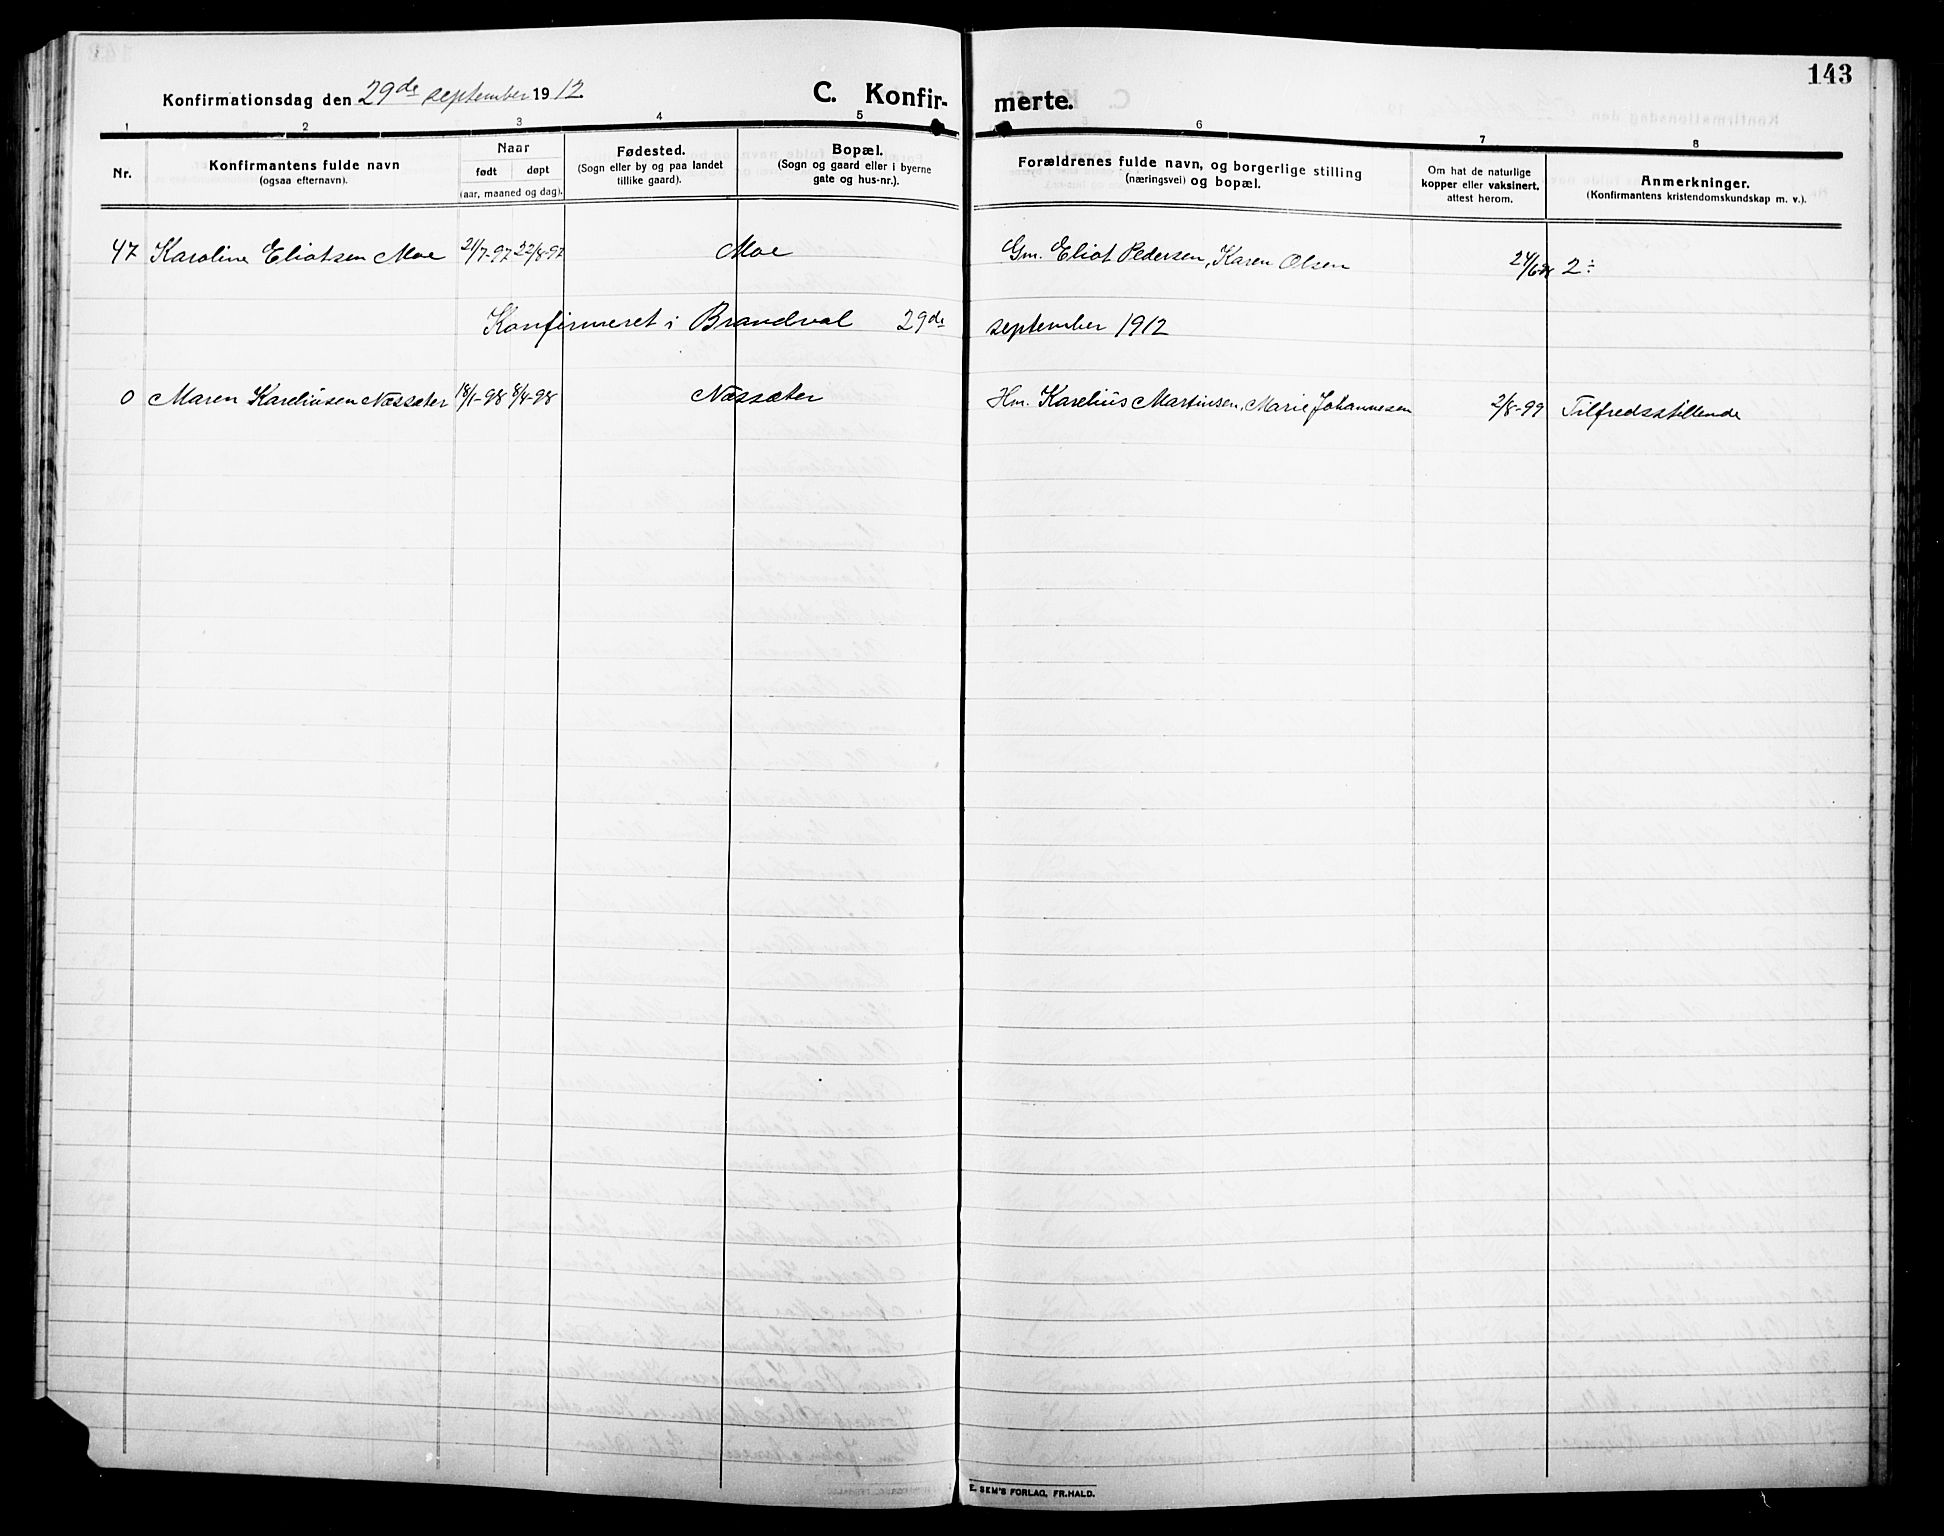 143
Konfirmationsdag den 29de september 1912. C. Konfir- merte.
1 2 3 4 5 6 7 8
Nr.
Konfirmantens fulde navn
(ogsaa efternavn).
Naar
født døpt
(aar, maaned og dag).
Fødested.
(Sogn eller by og paa landet
tillike gaard).
Bopæl.
(Sogn og gaard eller i byerne
gate og hus-nr.).
Forældrenes fulde navn, og borgerlige stilling
(næringsvei) og bopæl.
Om hat de naturlige
kopper eller vaksinert,
attest herom.
Anmerkninger.
(Konfirmantens kristendomskundskap m. v.).
47 Karoline Eliotsen Moe 21/7-97 22/8-97 Moe Gm. Eliot Pedersen, Karen Olsen 2÷
Konfirmeret i Brandval 29de september 1912
0 Maren Kareliusen Næssæter 18/1-98 8/4-98 Næssæter Hm. Karelius Martinsen, Marie Johannesen 2/8-99 Tilfredsstillende
E. SEM'S FORLAG, FR.HALD.